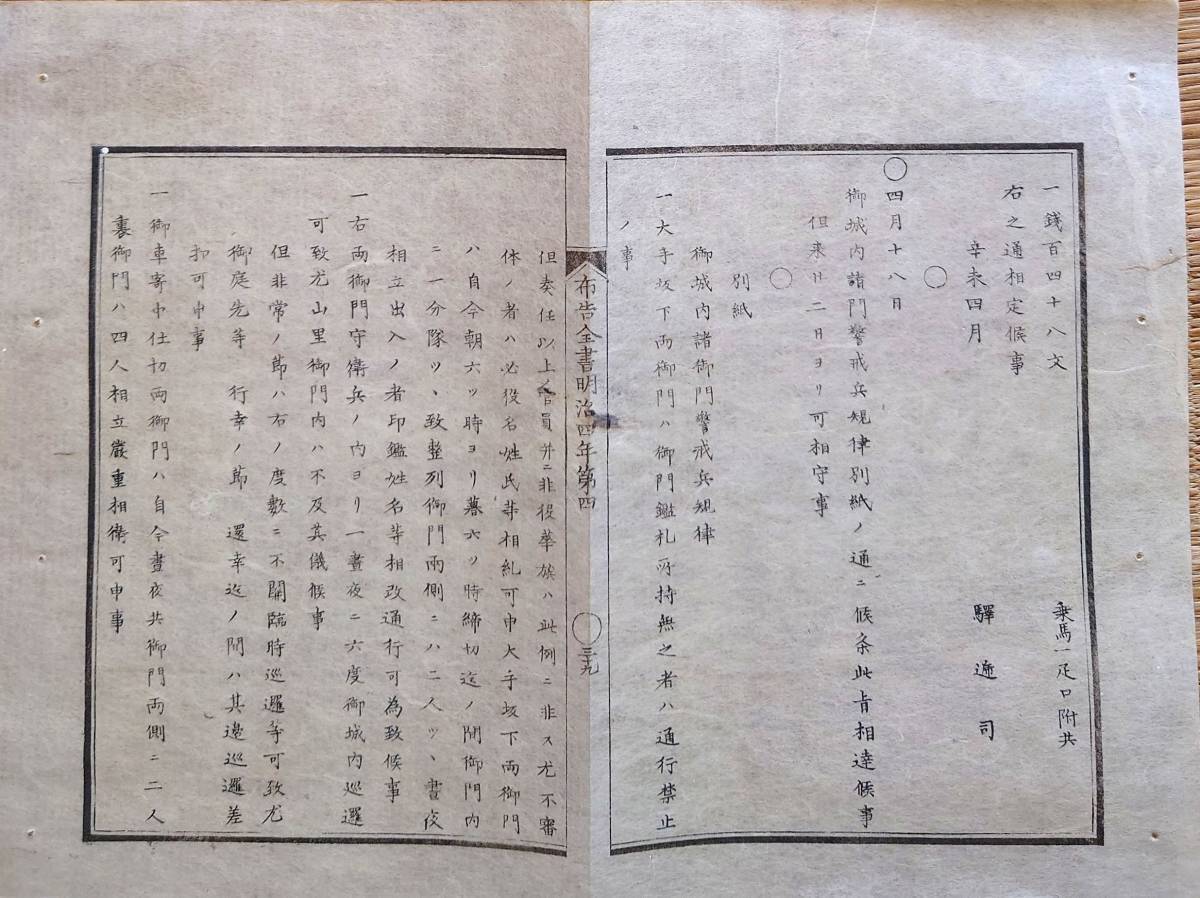 一錢百四十八文　乗馬一疋口附共
右之通相定候事
辛未四月　驛遞司
○
○四月十八日
御城内諸門警戒兵規律別紙ノ通ニ候条此旨相達候事
但来廿二日ヨリ可相守事
○
別紙
御城内諸御門警戒兵規律
一大手坂下両御門ハ御門鑑札所持無之者ハ通行禁止
ノ事
布告全書明治四年第四　三十九
但奏任以上ノ官員并ニ非役華族ハ此例ニ非ス尤不審
休ノ者ハ必役名姓氏等相糺可申大手坂下両御門
ハ自今朝六ツ時ヨリ暮六ツ時締切迄ノ間御門内
ニ一分隊ツヽ致整列御門両側ニハ二人ツヽ晝夜
相立出入ノ者印鑑姓名等相改通行可為致候事
一右両御門守衛兵ノ内ヨリ一晝夜ニ六度御城内巡邏
可致尤山里御門内ハ不及其儀候事
但非常ノ節ハ右ノ度數ニ不關臨時巡邏等可致尤
御庭先等　行幸ノ節　還幸迄ノ間ハ其邊巡邏差
扣可申事
一御車寄中仕切両御門ハ自今晝夜共御門両側ニ二人
裏御門ハ四人相立嚴重相衛可申事